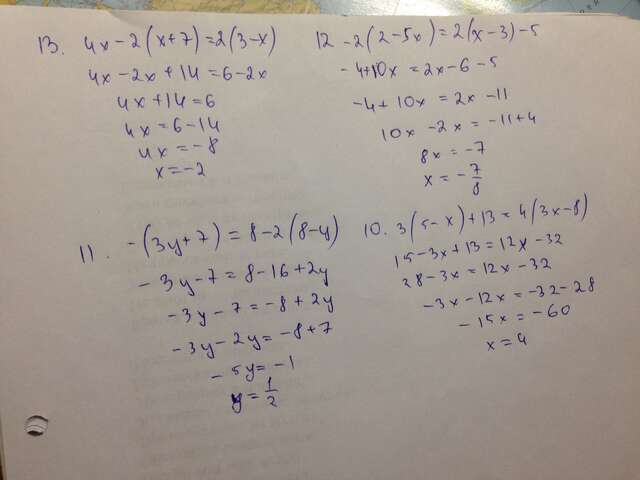 13. 4x-2(x+7)=2(3-x)
4x-2x+14=6-2x
4x+14=6
4x=6-14
4x=-8
x=-2
12 -2(2-5x)=2(x-3)-5
-4+10x=2x-6-5
-4+10x=2x-11
10x-2x=-11+4
8x=-7
x=-7/8
11. -(3y+7)=8-2(8-y)
-3y-7=8-16+2y
-3y-7=-8+2y
-3y-2y=-8+7
-5y=-1
y=1/2
10. 3(5-x)+13=4(3x-8)
15-3x+13=12x-32
28-3x=12x-32
-3x-12x=-32-28
-15x=-60
x=4